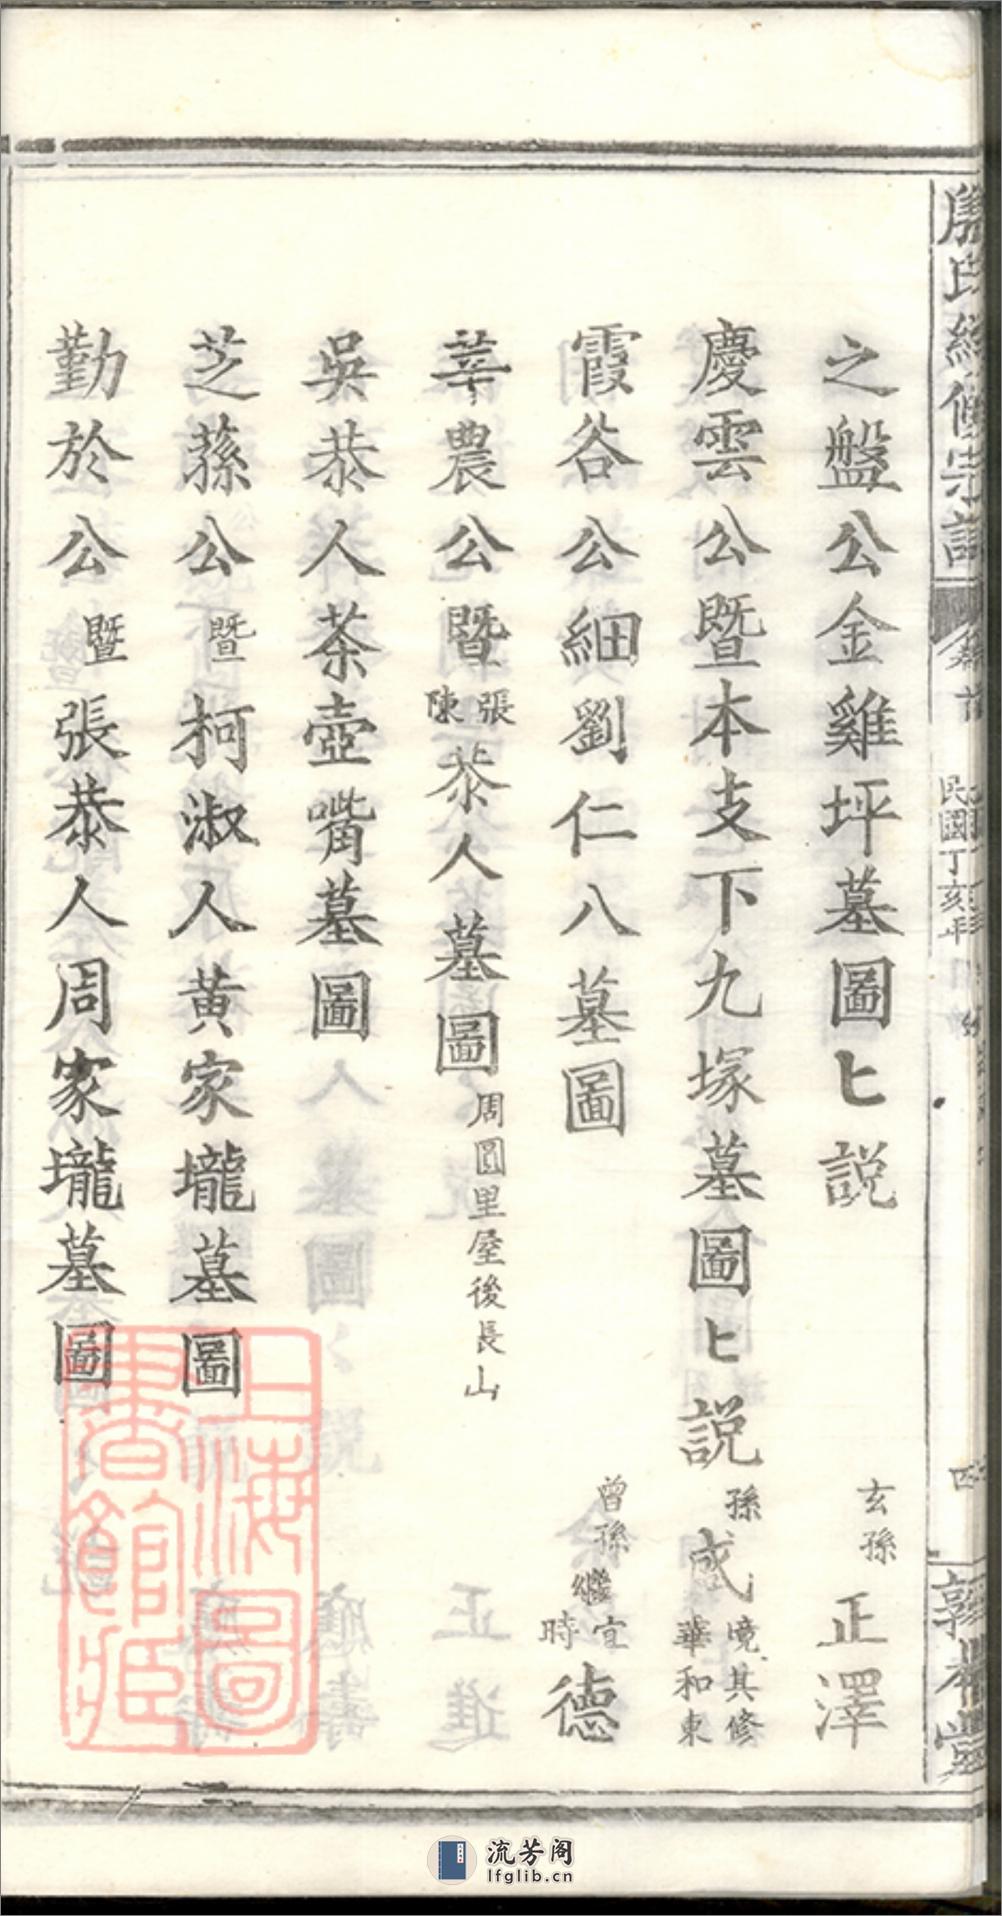 氏續修宗譜
民國丁亥年
敦本堂
之盤公金雞坪墓圖匕説 玄孫 正澤
慶雲公暨本支下九塚墓圖匕説 孫 成 境其修 華和東
霞谷公細劉仁八墓圖 曾孫 繼 宜 時 德
莘農公暨 張 陳 恭人墓圖 周圓里屋後長山
吳恭人茶壺嘴墓圖
芝蓀公暨柯淑人黃家壠墓圖
勤於公暨張恭人周家壠墓圖
上海圖書館藏
流芳阁
lfglib.cn